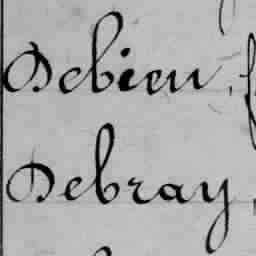 Debien,
Debray,